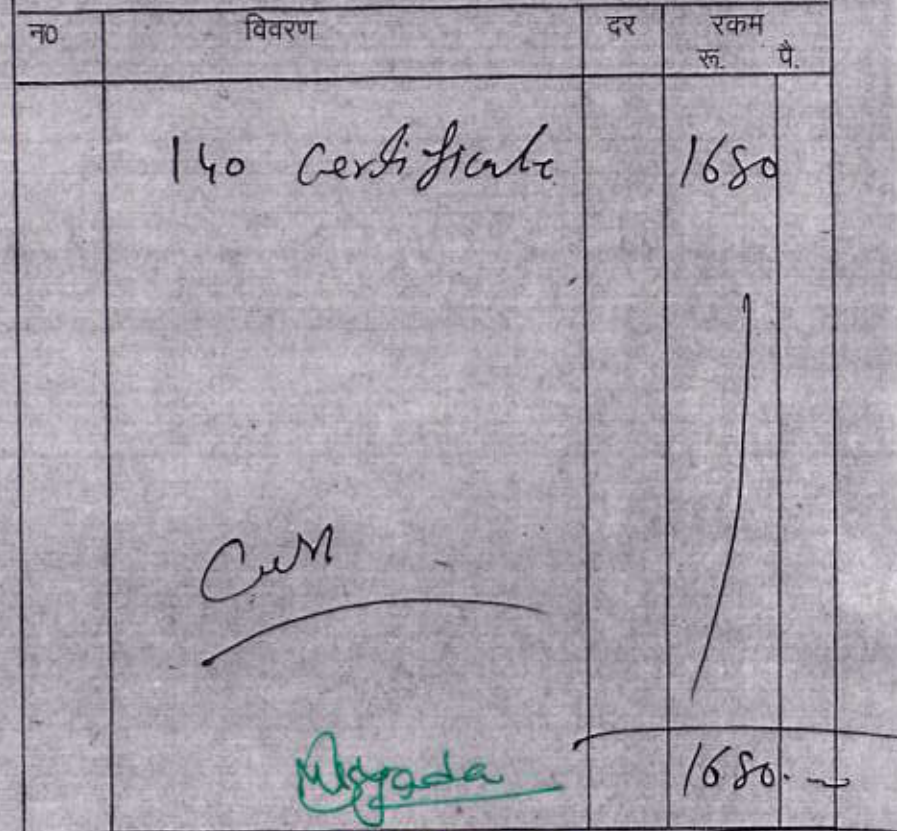 न0 विवरण दर रकम
रू. पै.
140 Certificate 1680
1680.